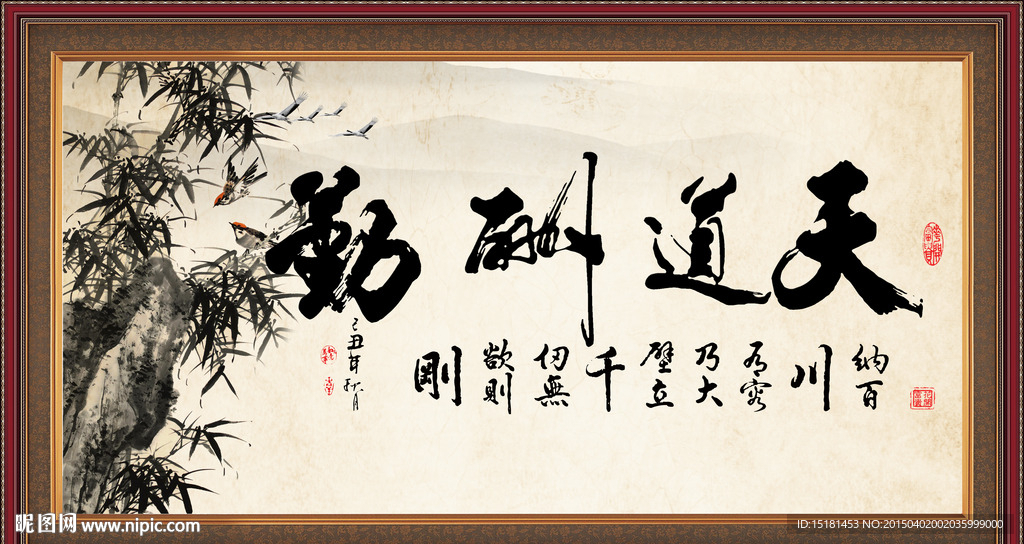 天道酬勤
納百川有容乃大壁立千仞無欲則剛
己丑年秋月
昵图网 www.nipic.com
ID:15181453 NO:20150402002035999000